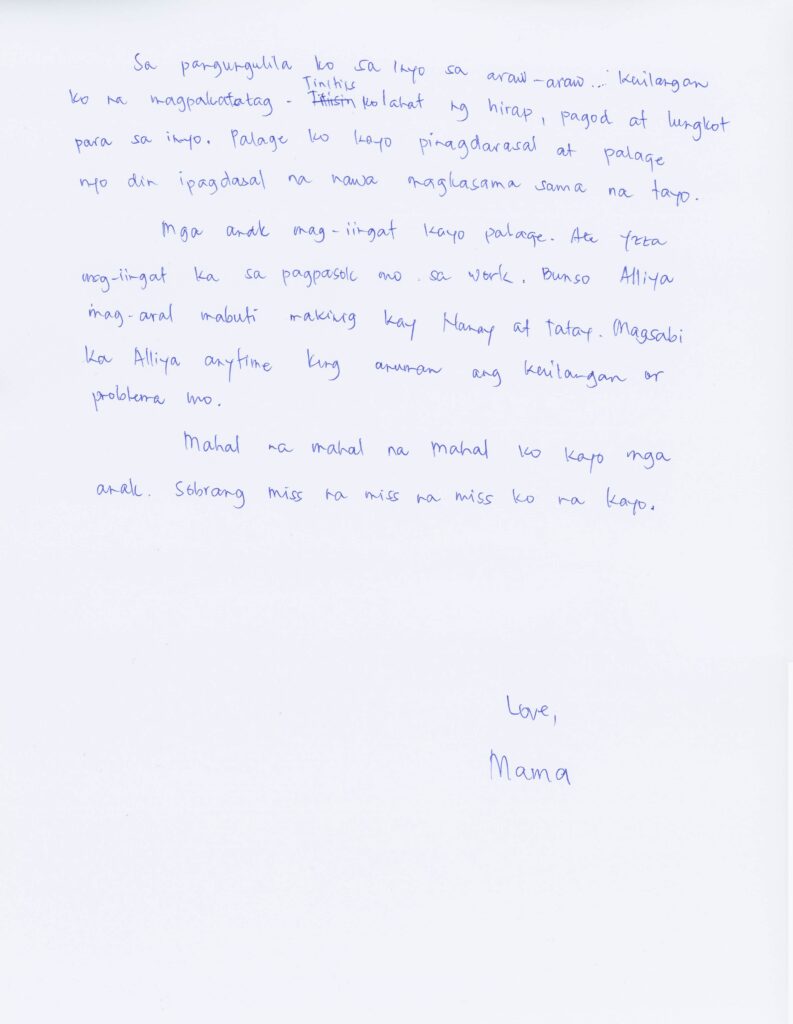 Sa pangungulila ko sa inyo sa araw-araw... kailangan
ko na magpakatatag. Tinitiis ko lahat ng hirap, pagod at lungkot
para sa inyo. Palage ko kayo pinagdarasal at palage
nyo din ipagdasal na nawa magkasama sama na tayo.
Mga anak mag-iingat kayo palage. Ate Yzza
mag-iingat ka sa pagpasok mo sa work. Bunso Alliya
mag-aral mabuti makinig kay Nanay at tatay. Magsabi
ka Alliya anytime kung anuman ang kailangan or
problema mo.
Mahal na mahal na mahal ko kayo mga
anak. Sobrang miss na miss na miss ko na kayo.
Love,
Mama